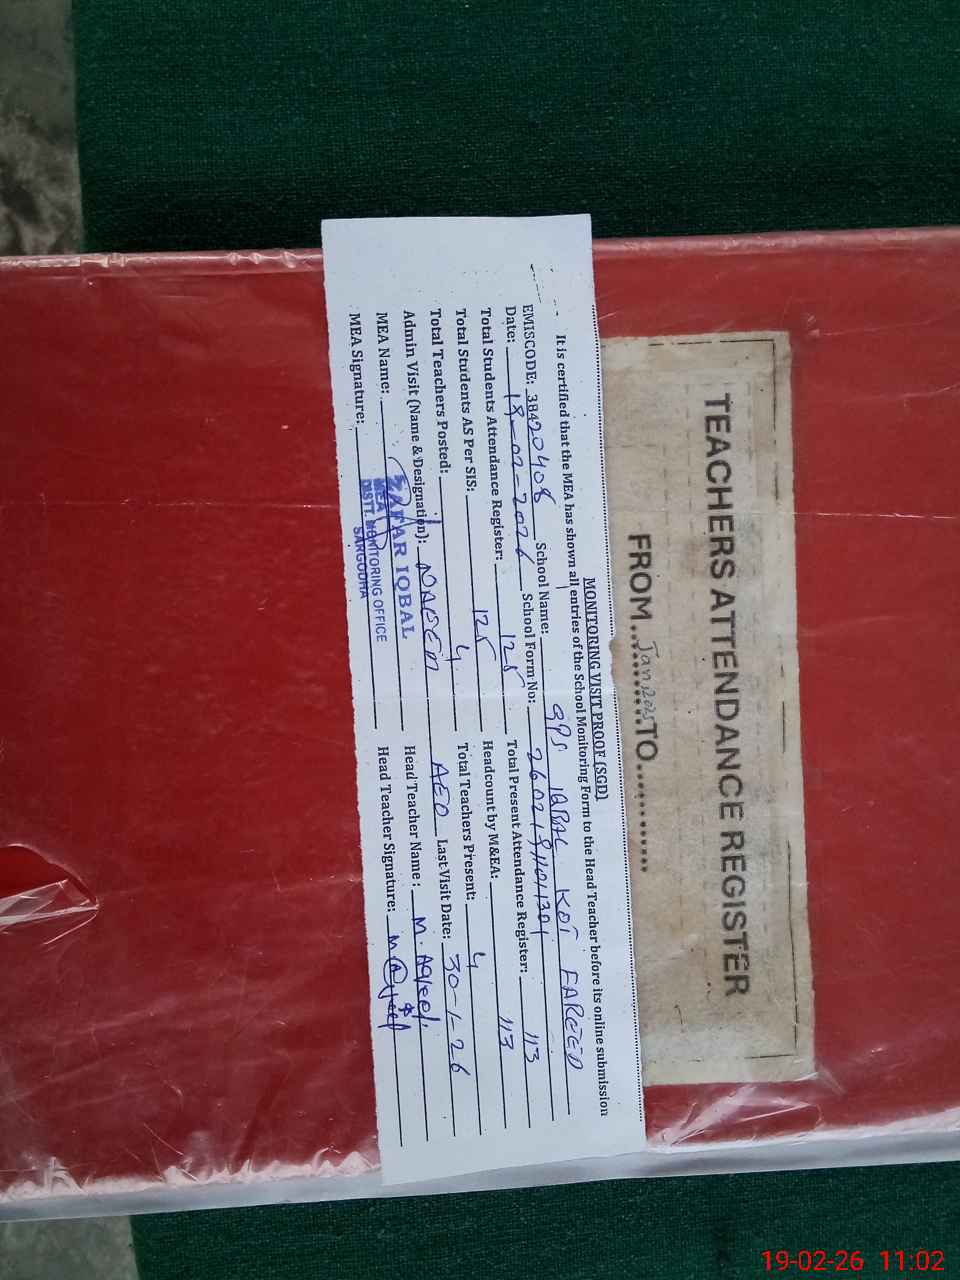 TEACHERS ATTENDANCE REGISTER
FROM..Jan.2025..TO.............
MONITORING VISIT PROOF (SGD)
It is certified that the MEA has shown all entries of the School Monitoring Form to the Head Teacher before its online submission
EMISCODE: 38420408 School Name: GPS IQBAL KOT FAREED
Date: 18-02-2026 School Form No:
Total Students Attendance Register: 125 Total Present Attendance Register: 113
Total Students AS Per SIS: 125 Headcount by M&EA: 113
Total Teachers Posted: 4 Total Teachers Present: 4
Admin Visit (Name & Designation): NAEEM AEO Last Visit Date: 30-1-26
MEA Name: ZAFAR IQBAL Head Teacher Name: M. Aqeel
MEA Signature: Head Teacher Signature: M Aqeel
MEA
DISTT. MONITORING OFFICE
SARGODHA
19-02-26 11:02